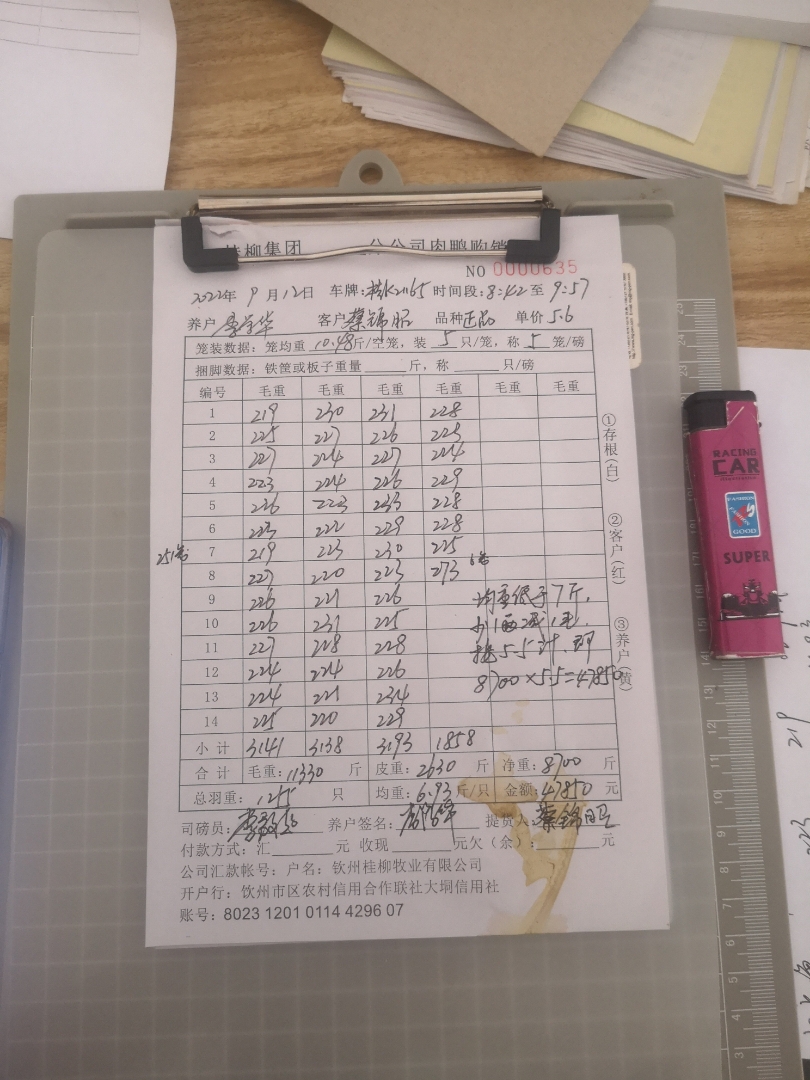 桂柳集团 分公司肉鸭购销
NO 0000635
2022年 9月12日 车牌: 时间段:8:42至9:57
养户 客户蔡锦昭 品种正品 单价5.6
笼装数据:笼均重 10.48斤/空笼,装 5 只/笼,称 5 笼/磅
捆脚数据:铁筐或板子重量 斤,称 只/磅
编号 毛重 毛重 毛重 毛重 毛重 毛重
1 219 230 231 228
2 225 227 226 225
3 227 224 227 224
4 223 224 226 229
5 226 223 233 228
6 223 222 229 228
7 219 223 230 225
8 227 220 223 273 6笼
9 226 221 226
10 226 231 225
11 227 228 228
12 224 224 226
13 224 221 234
14 225 220 229
小计 3141 3138 3193 1858
合计 毛重:11330 斤 皮重:2630 斤 净重:8700 斤
总羽重:1255 只 均重:6.93斤/只 金额:47850 元
251笼
均重低于7斤,
按5.5计.即
8700×5.5=47850
①存根(白)
②客户(红)
③养户(黄)
司磅员: 养户签名: 提货人:蔡锦昭
付款方式:汇 元 收现 元欠(余): 元
公司汇款帐号:户名:钦州桂柳牧业有限公司
开户行:钦州市区农村信用合作联社大垌信用社
账号:8023 1201 0114 4296 07
RACING
CAR
FASHION
GOOD
SUPER
219